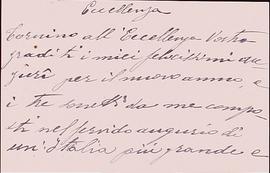 Eccellenza
Tornino all'Eccellenza Vostra
graditi i miei felicissimi au
gurî per il nuovo anno, e
i tre sonetti da me compo
sti nel fervido augurio di
un'Italia più grande e